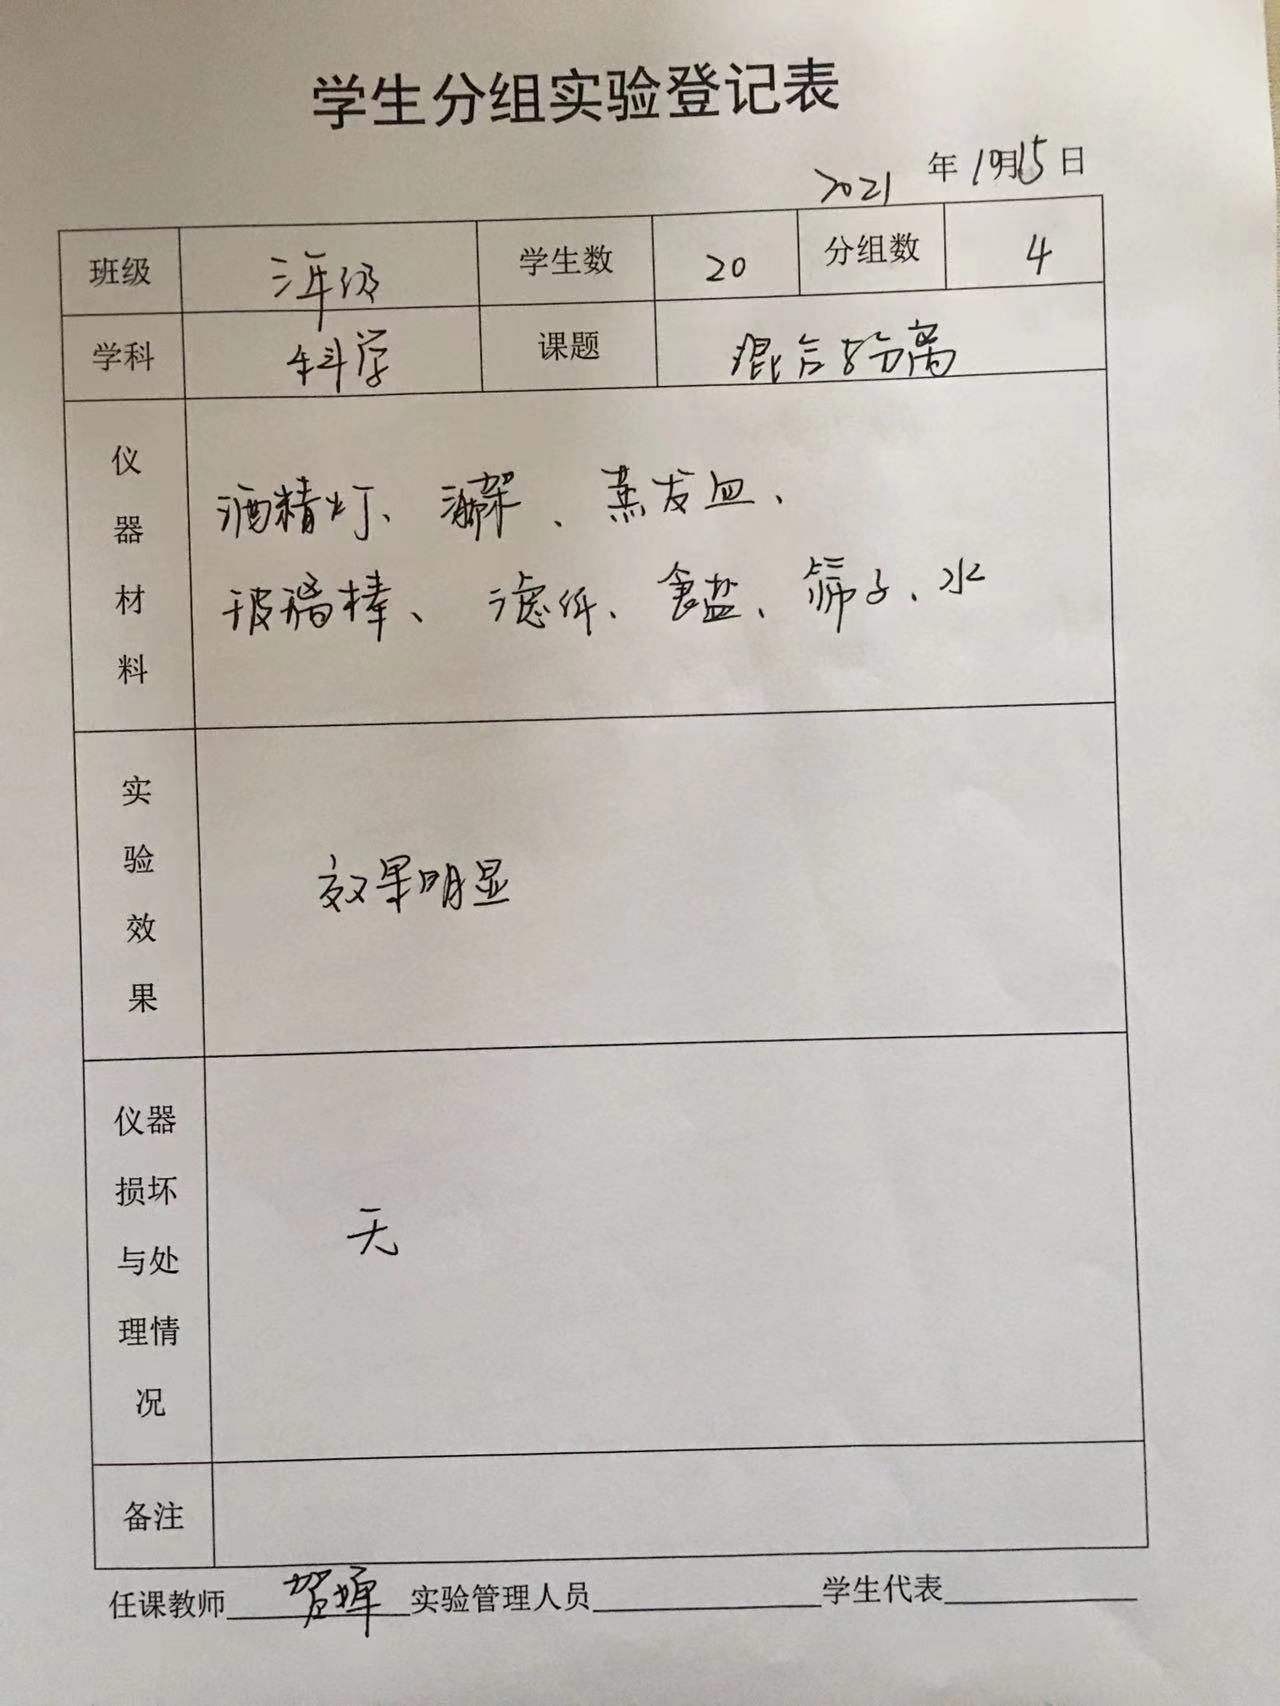 学生分组实验登记表
2021 年 10月15日
班级 三年级 学生数 20 分组数 4
学科 科学 课题 混合与分离
仪器材料 酒精灯、 、蒸发皿、
玻璃棒、滤纸、食盐、筛子、水
实验效果 效果明显
仪器损坏与处理情况 无
备注
任课教师 贺婵 实验管理人员 学生代表